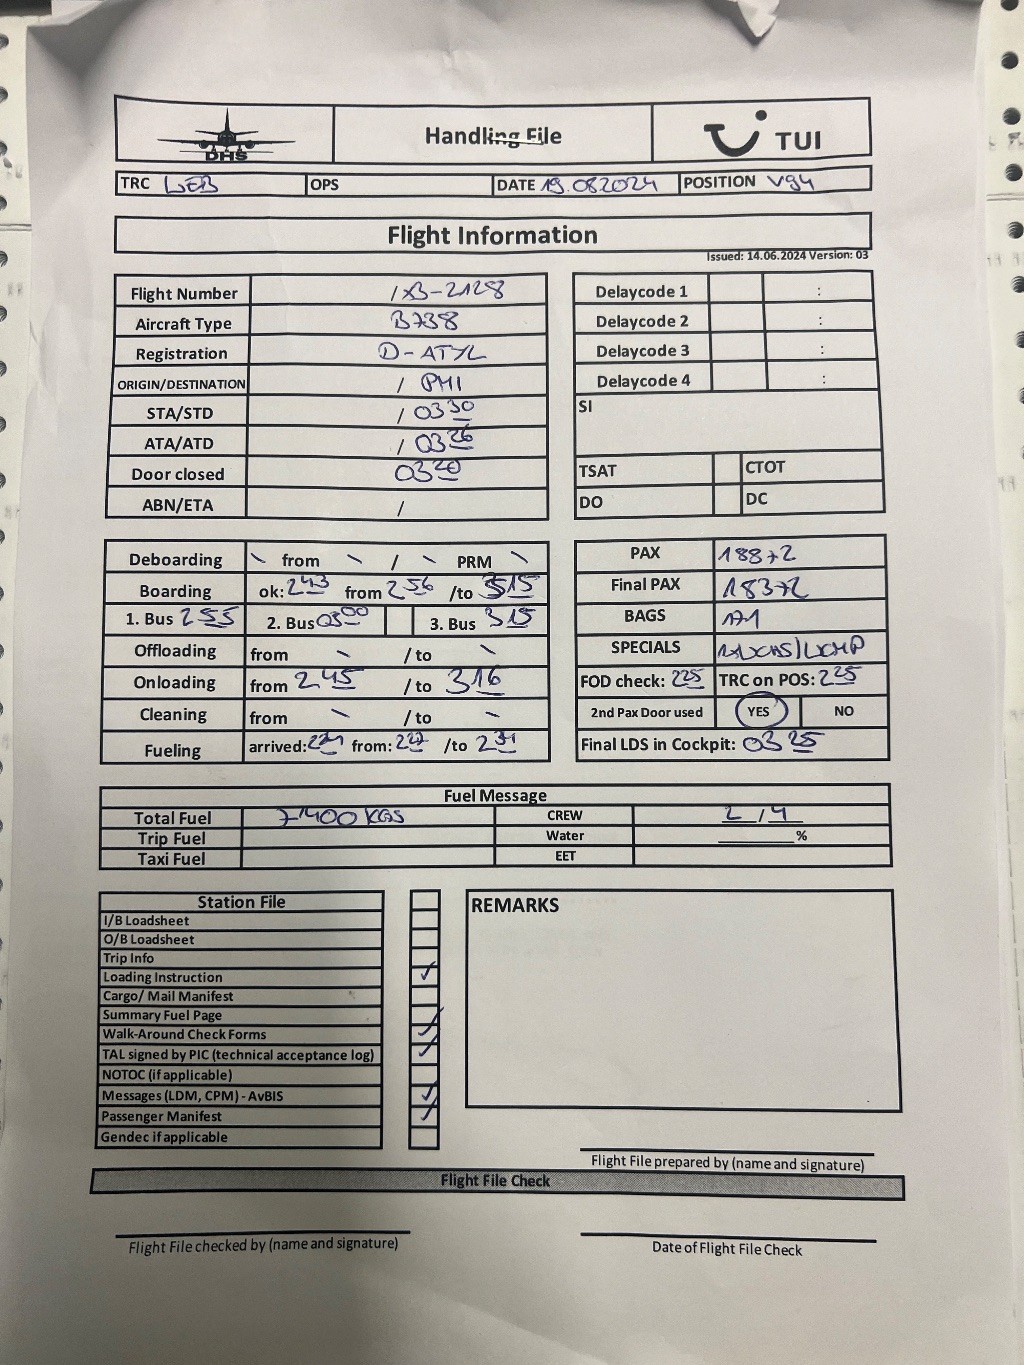 DHS
Handling File
TUI
TRC WEB OPS DATE 19.082024 POSITION V94
Flight Information
Issued: 14.06.2024 Version: 03
Flight Number / X3-2128
Aircraft Type B738
Registration D-ATYL
ORIGIN/DESTINATION / PMI
STA/STD / 0330
ATA/ATD / 0326
Door closed 0320
ABN/ETA /
Delaycode 1 :
Delaycode 2 :
Delaycode 3 :
Delaycode 4 :
SI
TSAT CTOT
DO DC
Deboarding \ from \ / \ PRM \
Boarding ok: 243 from 256 /to 315
1. Bus 255 2. Bus 0300 3. Bus 315
Offloading from - /to \
Onloading from 245 /to 316
Cleaning from \ /to -
Fueling arrived: from: 227 /to
PAX 188+2
Final PAX 183+2
BAGS 171
SPECIALS
FOD check: 225 TRC on POS: 225
2nd Pax Door used YES NO
Final LDS in Cockpit: 0325
Fuel Message
Total Fuel 7400 KGS CREW 2 / 4
Trip Fuel Water ______%
Taxi Fuel EET
Station File
I/B Loadsheet
O/B Loadsheet
Trip Info
Loading Instruction ✓
Cargo/ Mail Manifest
Summary Fuel Page
Walk-Around Check Forms ✓
TAL signed by PIC (technical acceptance log) ✓
NOTOC (if applicable)
Messages (LDM, CPM) - AvBIS ✓
Passenger Manifest ✓
Gendec if applicable
REMARKS
Flight File prepared by (name and signature)
Flight File Check
Flight File checked by (name and signature)
Date of Flight File Check